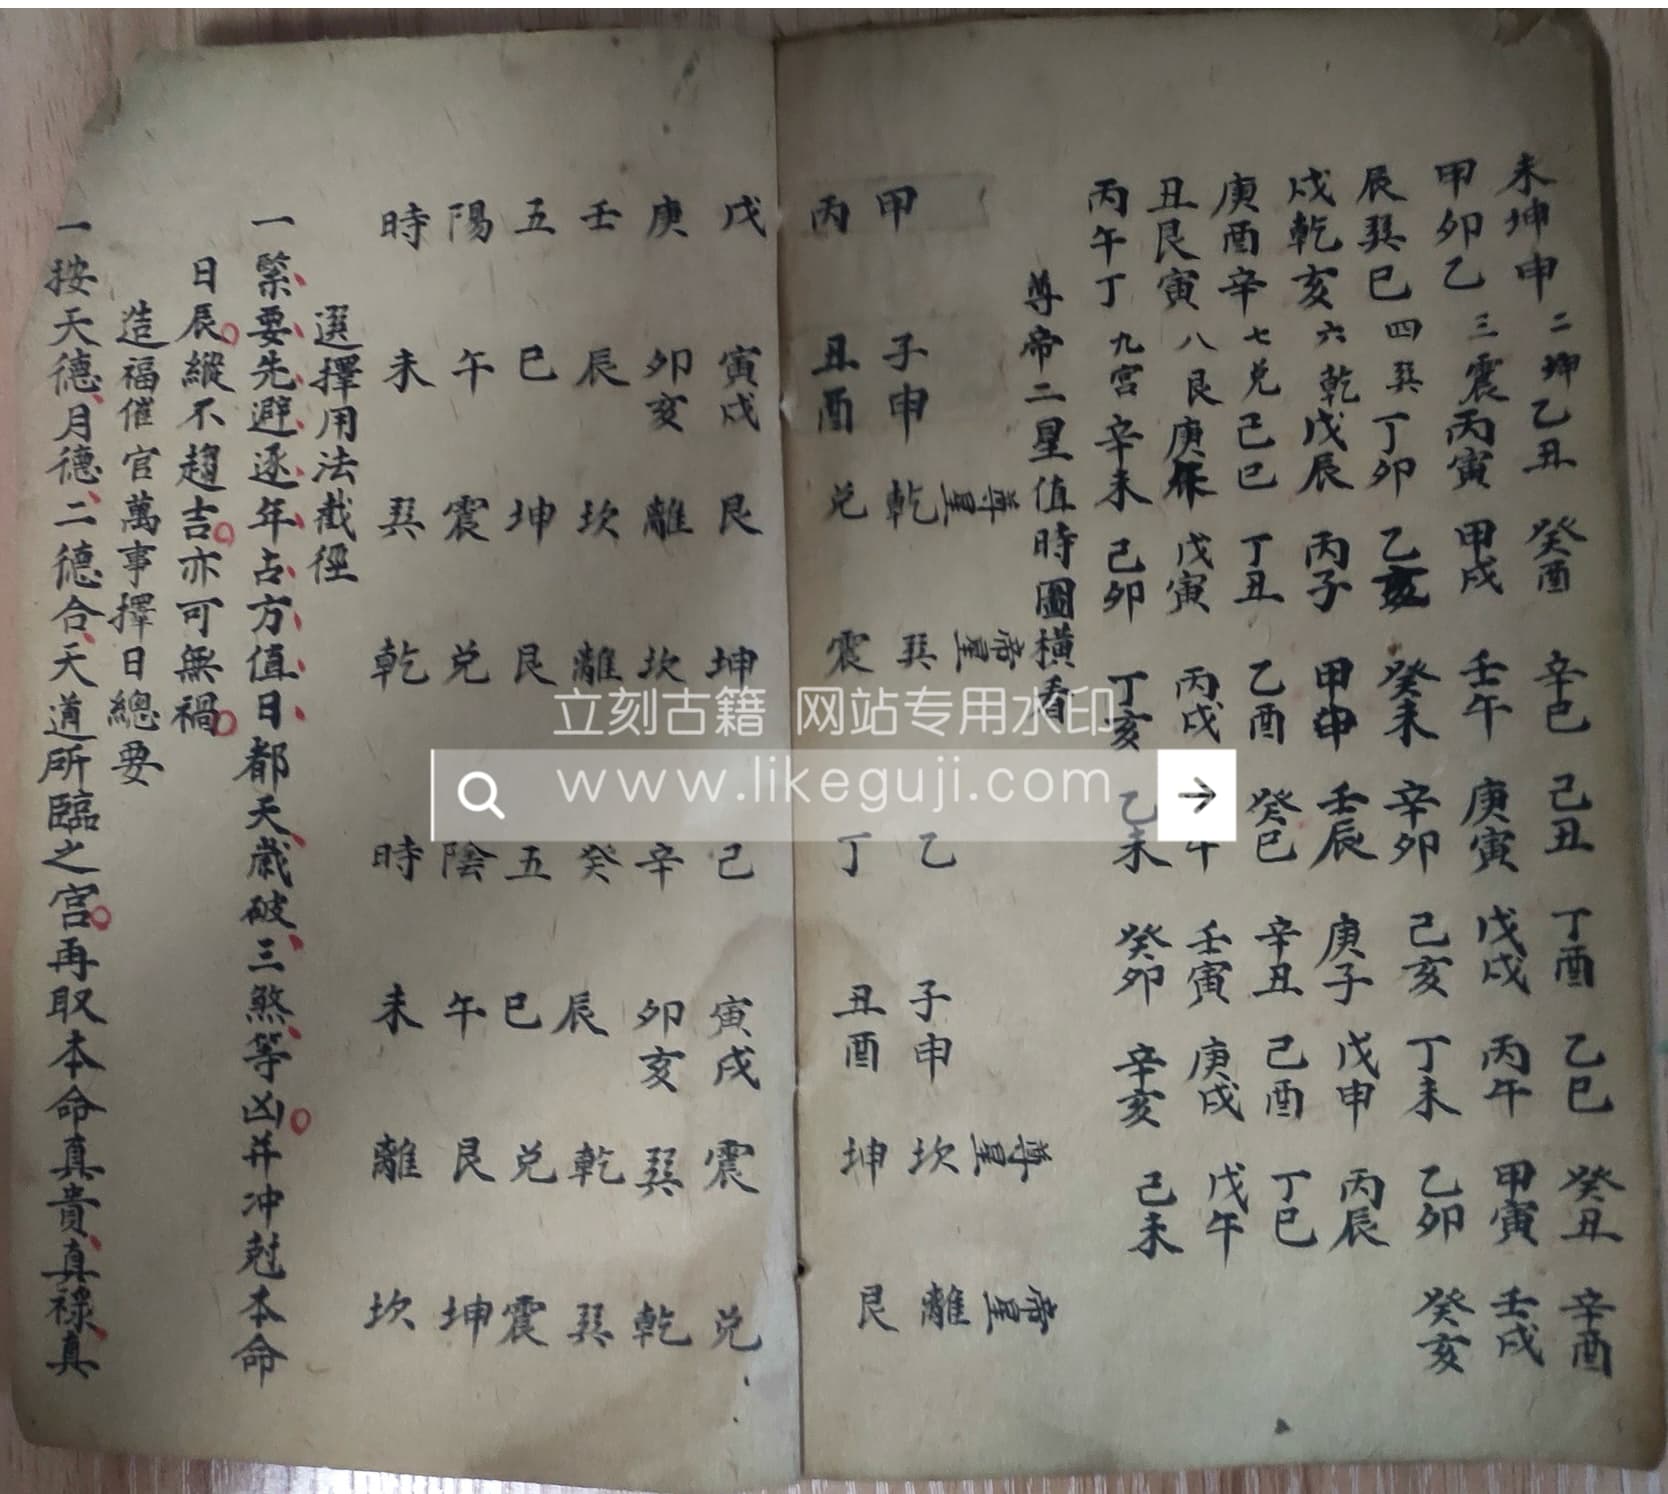 未坤申 二坤 乙丑 癸酉 辛巳 己丑 丁酉 乙巳 癸丑 辛酉
甲卯乙 三震 丙寅 甲戌 壬午 庚寅 戊戌 丙午 甲寅 壬戌
辰巽巳 四巽 丁卯 乙亥 癸未 辛卯 己亥 丁未 乙卯 癸亥
戌乾亥 六乾 戊辰 丙子 甲申 壬辰 庚子 戊申 丙辰
庚酉辛 七兑 己巳 丁丑 乙酉 癸巳 辛丑 己酉 丁巳
丑艮寅 八艮 庚 戊寅 丙戌 午 壬寅 庚戌 戊午
丙午丁 九宮 辛未 己卯 丁亥 乙未 癸卯 辛亥 己未
尊帝二星值時圖橫看
尊星 帝星 尊星 帝星
甲 子申 乾 巽 乙 子申 坎 離
丙 丑酉 兑 震 丁 丑酉 坤 艮
戊 寅戌 艮 坤 己 寅戌 震 兑
庚 卯亥 離 坎 辛 卯亥 巽 乾
壬 辰 坎 離 癸 辰 乾 巽
五 巳 坤 艮 五 巳 兑 震
陽 午 震 兑 陰 午 艮 坤
時 未 巽 乾 時 未 離 坎
選擇用法截徑
一緊要先避逐年占方值日都天歲破三煞等凶并冲尅本命
日辰縱不趨吉亦可無禍
造福催官萬事擇日總要
一按天德月德二德合天道所臨之宮再取本命真貴真祿真
立刻古籍 网站专用水印
www.likeguji.com